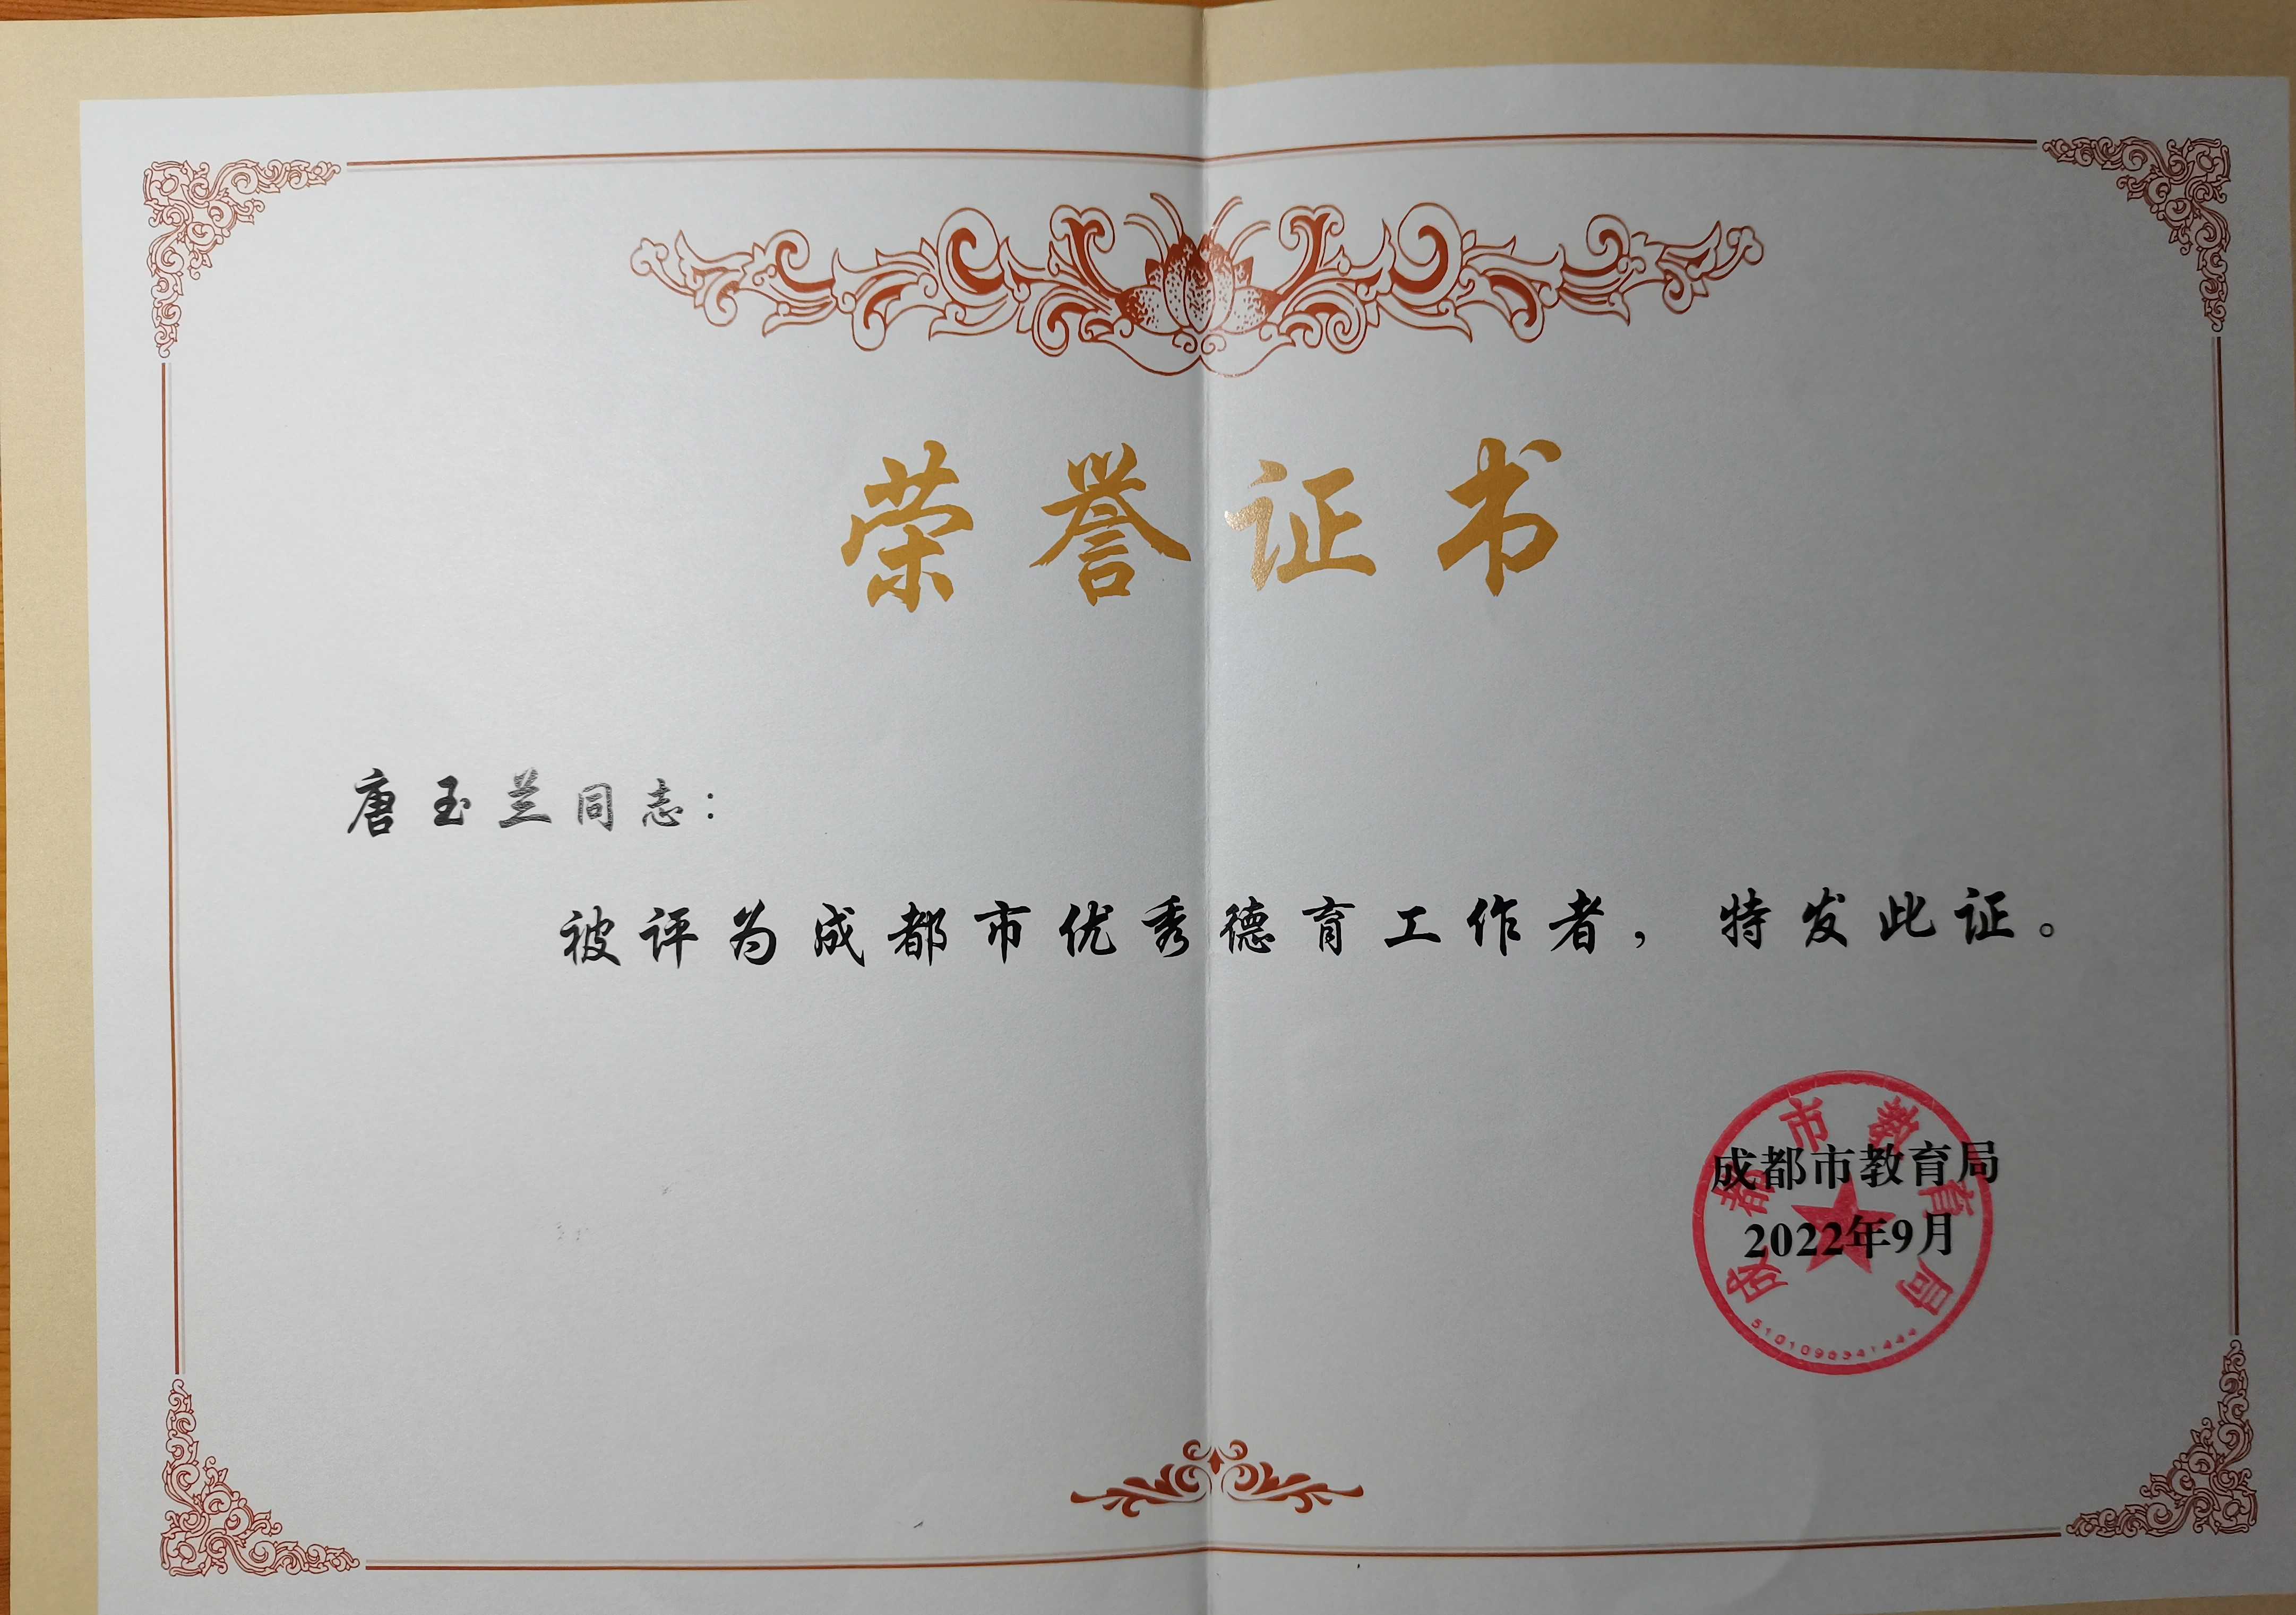 荣誉证书
唐玉兰同志：
被评为成都市优秀德育工作者，特发此证。
成都市教育局
2022年9月
成都市教育局